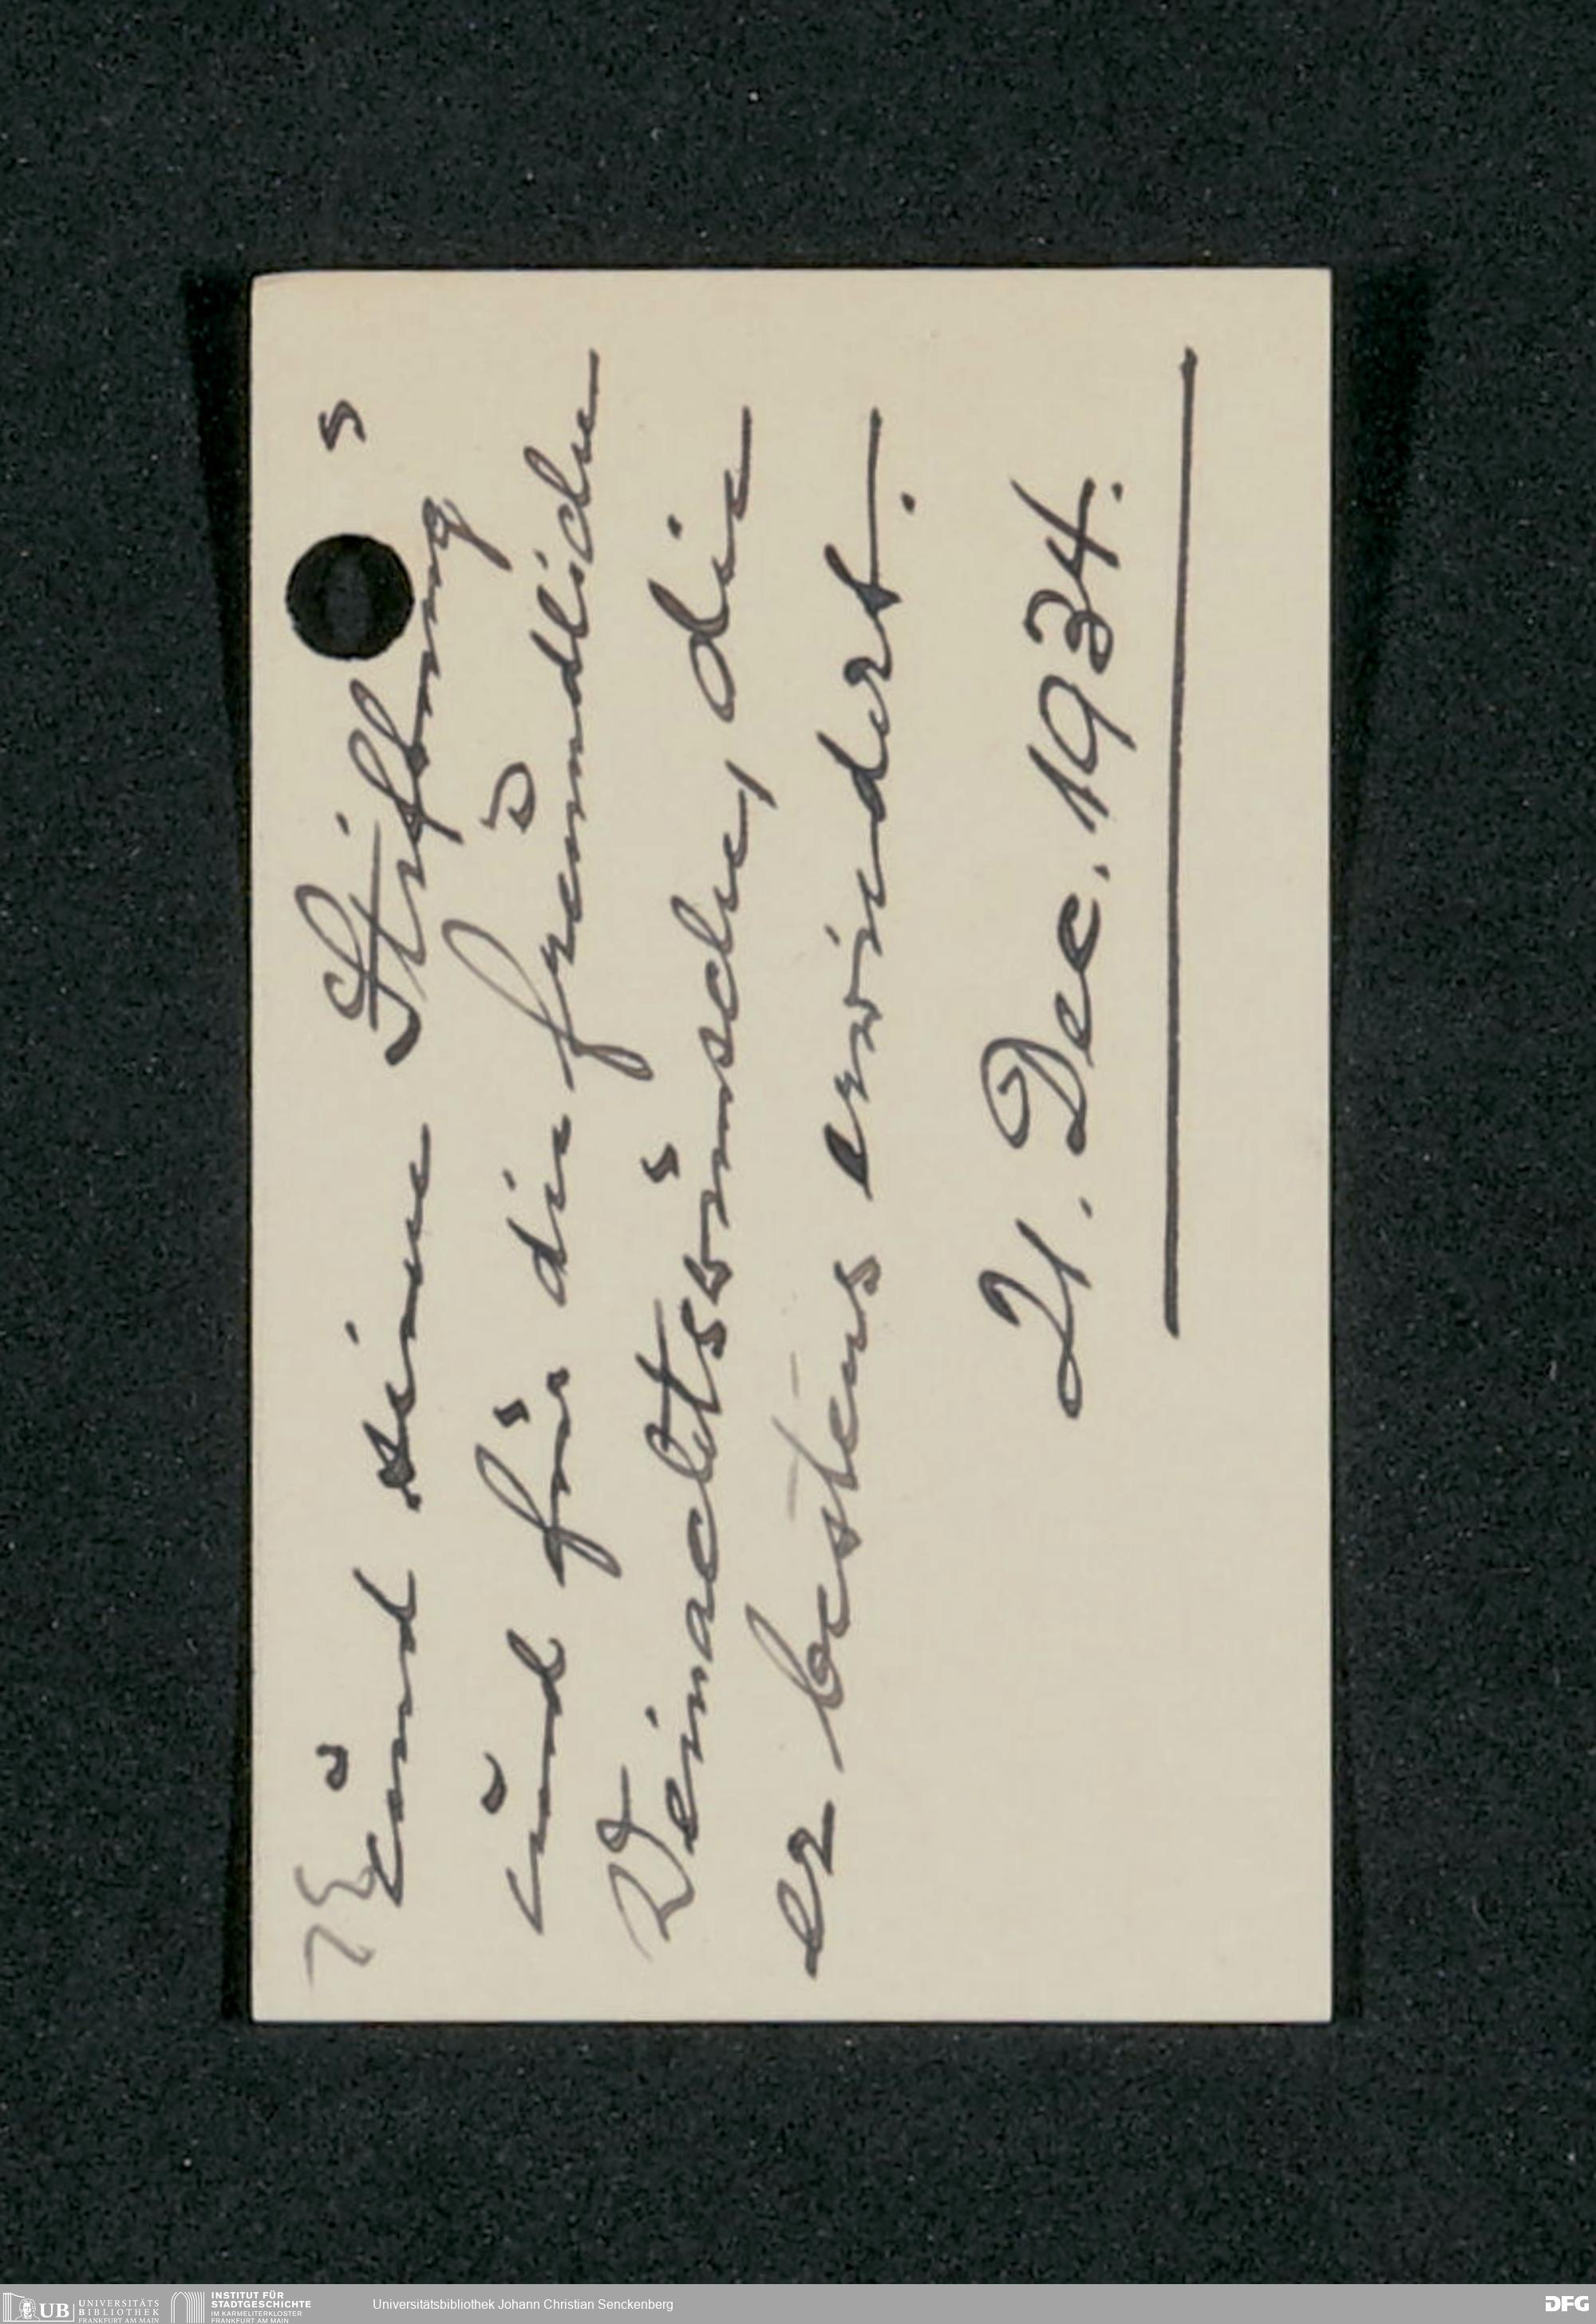 und seine Stiftung
und für die freundliche
Weinachtswünsche, die
er bestens erwidert.
21. Dec. 1934.
UB UNIVERSITÄTS
BIBLIOTHEK
FRANKFURT AM MAIN
INSTITUT FÜR
STADTGESCHICHTE
IM KARMELITERKLOSTER
FRANKFURT AM MAIN
Universitätsbibliothek Johann Christian Senckenberg
DFG